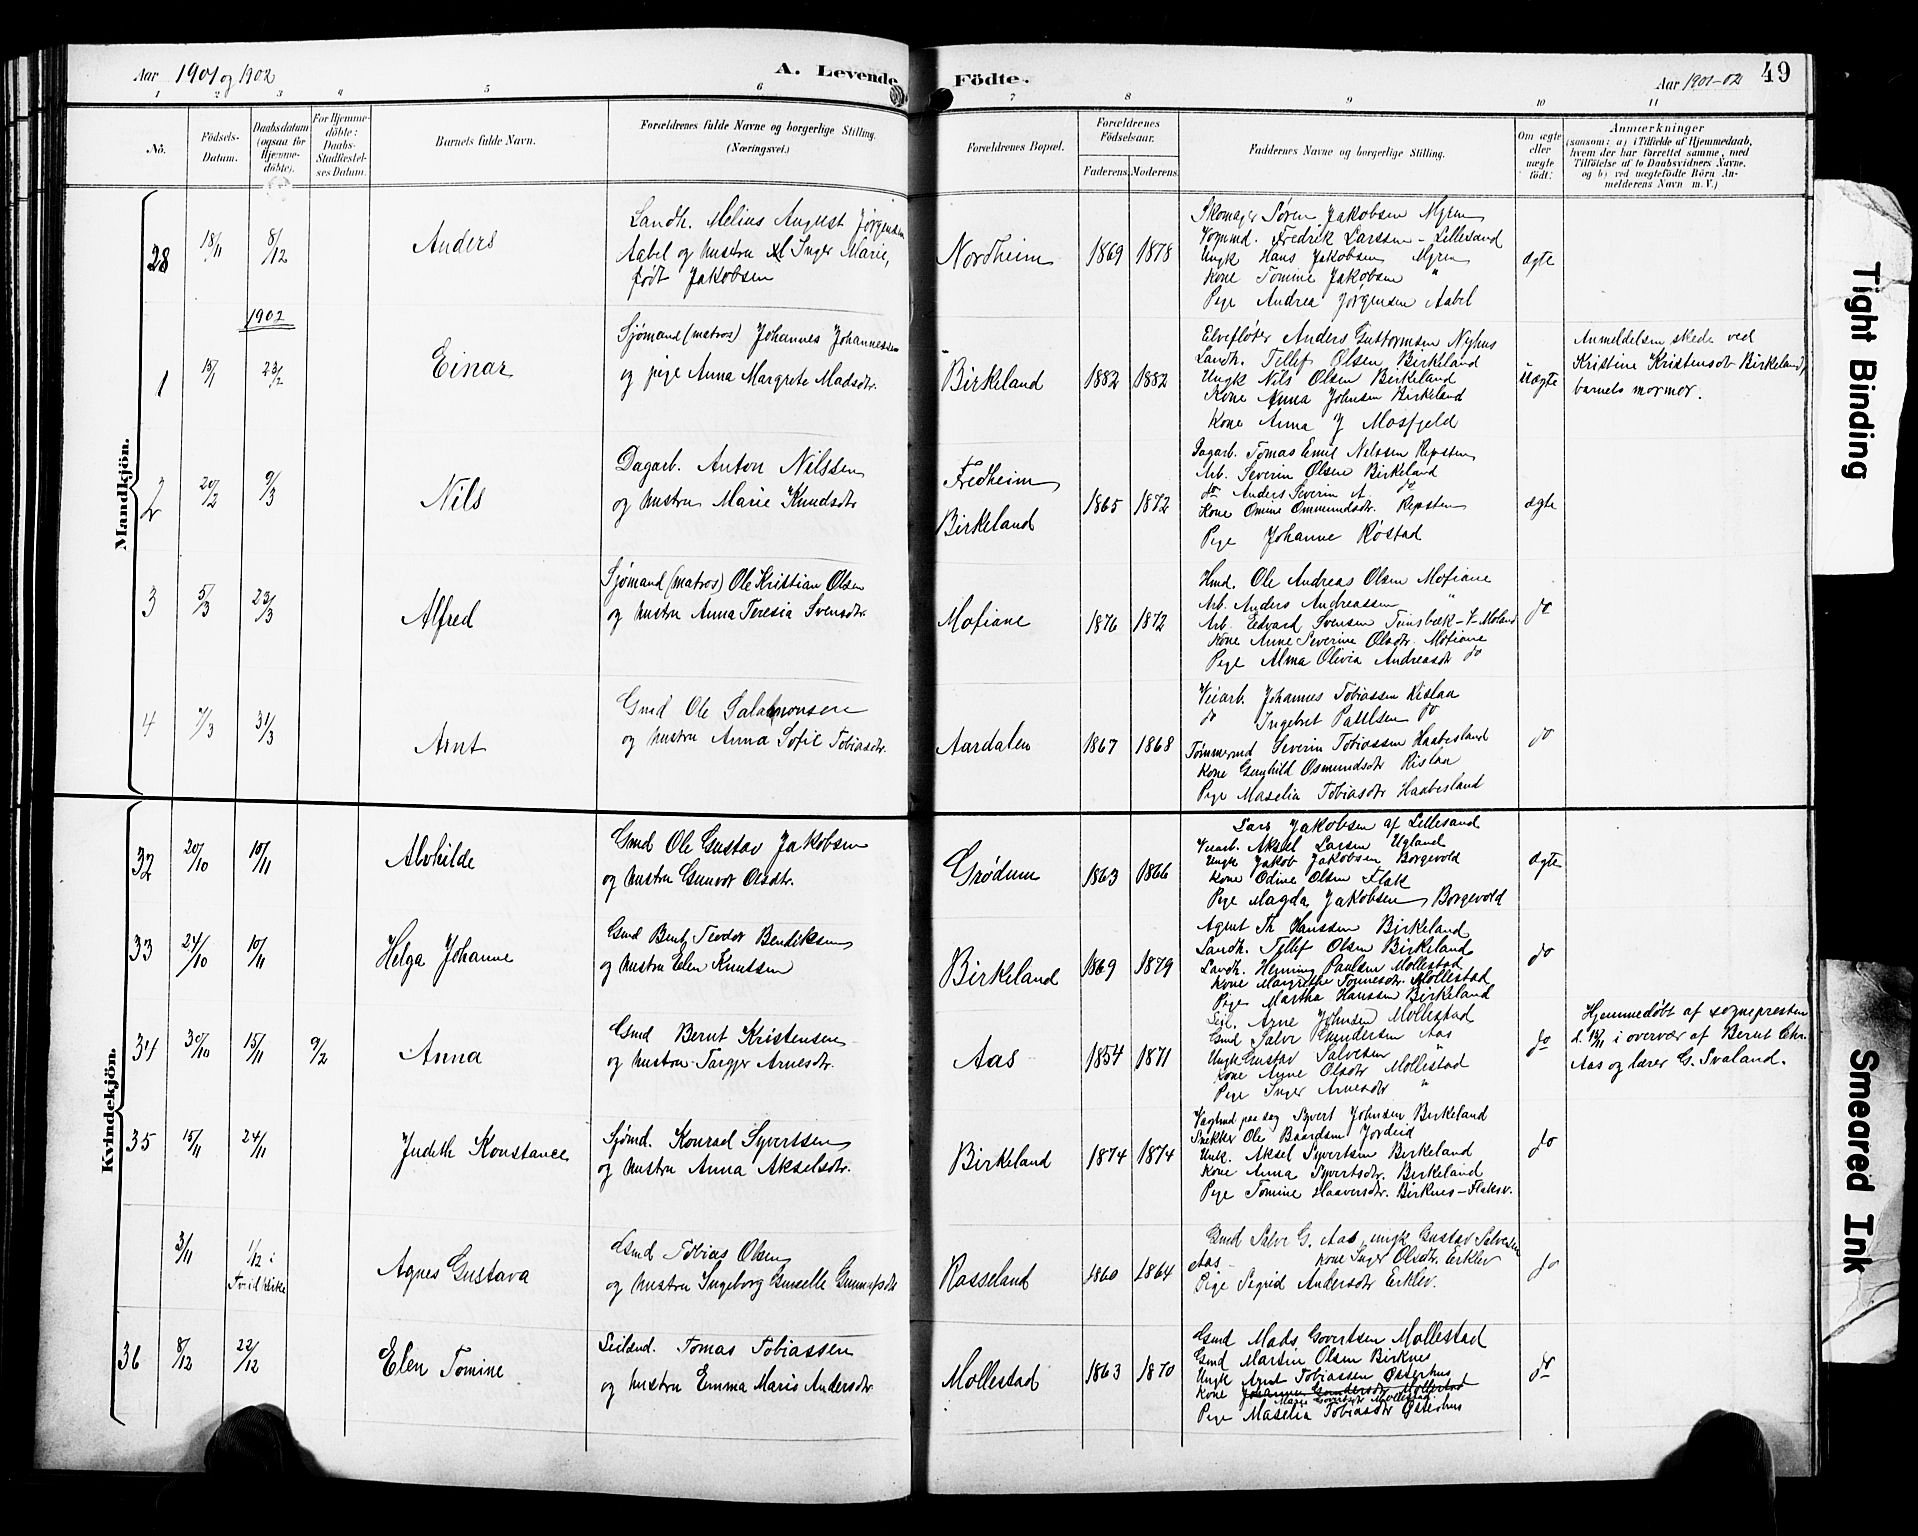 Aar 1901 og 1902
A. Levende Födte.
Aar 1901-02
49
1 2 3 4 5 6 7 8 9 10 11
No.
Födsels-Datum.
Daabsdatum (ogsaa for Hjemmedöbte).
For Hjemmedöbte: Daabs-Stadfæstelses Datum.
Barnets fulde Navn.
Forældrenes fulde Navne og borgerlige Stilling. (Næringsvei.)
Forældrenes Bopæl.
Forældrenes Födselsaar.
Faderens. Moderens.
Faddernes Navne og borgerlige Stilling.
Om ægte eller uægte födt.
Anmærkninger
(saasom: a) i Tilfælde af Hjemmedaab, hvem der har forrettet samme, med Tilföielse af to Daabsvidners Navne, og b) ved uægtefödte Börn Anmelderens Navn m. V.)
Mandkjön.
28 18/11 8/12 Anders
Landh. Melius August Jørgensen
Aabel og hustru Inger Marie,
født Jakobsen
Nordheim 1869 1878
Skomager Søren Jakobsen Myren
Fredrik Larssen - Lillesand
Ungk Hans Jakobsen Myren
Kone Tomine Jakobsen "
Pige Andrea Jørgensen Aabel
ægte
1902
1 15/1 23/2 Einar
Sjømand (matros) Johannes Johannessen
og pige Anna Margrete Madsdtr.
Birkeland 1882 1882
Elvefløter Anders Guttormsen Nyhus
Landh. Tellef Olsen Birkeland
Ungk Nils Olsen Birkeland
Kone Anna Johnsen Birkeland
Kone Anna J Mosfjeld
Uægte
Anmeldelsen skede ved
Kristine Kristensdt Birkeland,
barnets mormor.
2 20/2 9/3 Nils
Dagarb. Anton Nilssen
og hustru Marie Knudsdtr
Fredheim
Birkeland
1865 1872
Dagarb. Tomas Emil Nelssen Repsten
Arb. Severin Olsen Birkeland
do Anders Severin A. do
Kone Omine Ommundsdtr. Repsten
Pige Johanne Røstad
ægte
3 5/3 23/3 Alfred
Sjømand (matros) Ole Kristian Olsen
og hustru Anna Teresia Svensdtr.
Mofiane 1876 1872
Hmd. Ole Andreas Olsen Mofiane
Arb. Anders Andreassen "
Arb. Edvard Svensen Tinsbæk - V-Moland
Kone Anne Severine Olsdtr. Mofiane
Pige Alma Olivia Andreasdtr do
do
4 7/3 31/3 Arnt
Gmd Ole Salamonsen
og hustru Anna Sofie Tobiasdtr.
Aardalen 1867 1868
Veiarb. Johannes Tobiassen Rislaa
do Ingebret Paulsen do
Tømmermd Severin Tobiassen Haabesland
Kone Gunhild Osmundsdtr Rislaa
Pige Maselia Tobiasdtr Haabesland
do
Kvindekjön.
32 20/10 10/11 Alvhilde
Gmd Ole Gustav Jakobsen
og hustru Gunvor Olsdtr.
Grødum 1863 1866
Lars Jakobsen af Lillesand
Veiarb. Aksel Larsen Ugland
Ungk Jakob Jakobsen Borgevold
Kone Odine Olsen Flak
Pige Magda Jakobsen Borgevold
ægte
33 24/10 10/11 Helga Johanne
Gmd Bent Teodor Bendiksen
og hustru Elen Knutsen
Birkeland 1869 1879
Agent Th Hanssen Birkeland
Landh. Tellef Olsen Birkeland
Landh. Henning Paulsen Mollestad
Kone Margrethe Tønnesdtr. Mollestad
Pige Martha Hanssen Birkeland
do
34 30/10 15/11 9/2 Anna
Gmd Bernt Kristensen
og hustru Targjer Arnesdtr.
Aas 1854 1871
Seil. Arne Johnsen Mollestad
Gmd Salve Gundersen Aas
Ungk Gustav Salvesen "
Kone Anne Olsdtr Mollestad
Pige Inger Arnesdtr "
do
Hjemmedøbt af sognepresten
d. 15/11 i overvær af Bernt Chr.
Aas og lærer G. Svaland.
35 15/11 24/11 Judith Konstance
Sjømd. Konrad Syvertsen
og hustru Anna Akselsdtr.
Birkeland 1874 1874
paa sag Syvert Johnsen Birkeland
Snekker Ole Baardsen Jordeid
Unk. Aksel Syvertsen Birkeland
Kone Anna Syvertsdtr. Birkeland
Pige Tomine Haaversdtr. Birknes - Flaksv.
do
3/11 1/12 i Kirke Agnes Gustava
Gmd Tobias Olsen
og hustru Ingeborg
Rosseland 1860 1864
Gmd Salve G. Aas, ungk Gustav Salvesen
Aas - Kone Inger Olsdtr. Erklev
Pige Sigrid Andersdtr Erklev.
do
36 8/12 22/12 Elen Tomine
Seilsnd. Tomas Tobiassen
og hustru Emma Marie Andersdtr
Mollestad 1863 1870
Gmd Mads Govertsen Mollestad
Gmd Martin Olsen Birknes
Ungk Arnt Tobiassen Østerhus
Kone Johanne Gundersdtr Mollestad
Marie Govertsdt Mollestad
Pige Maselia Tobiasdtr Østerhus
do
Tight Binding
Smeared Ink